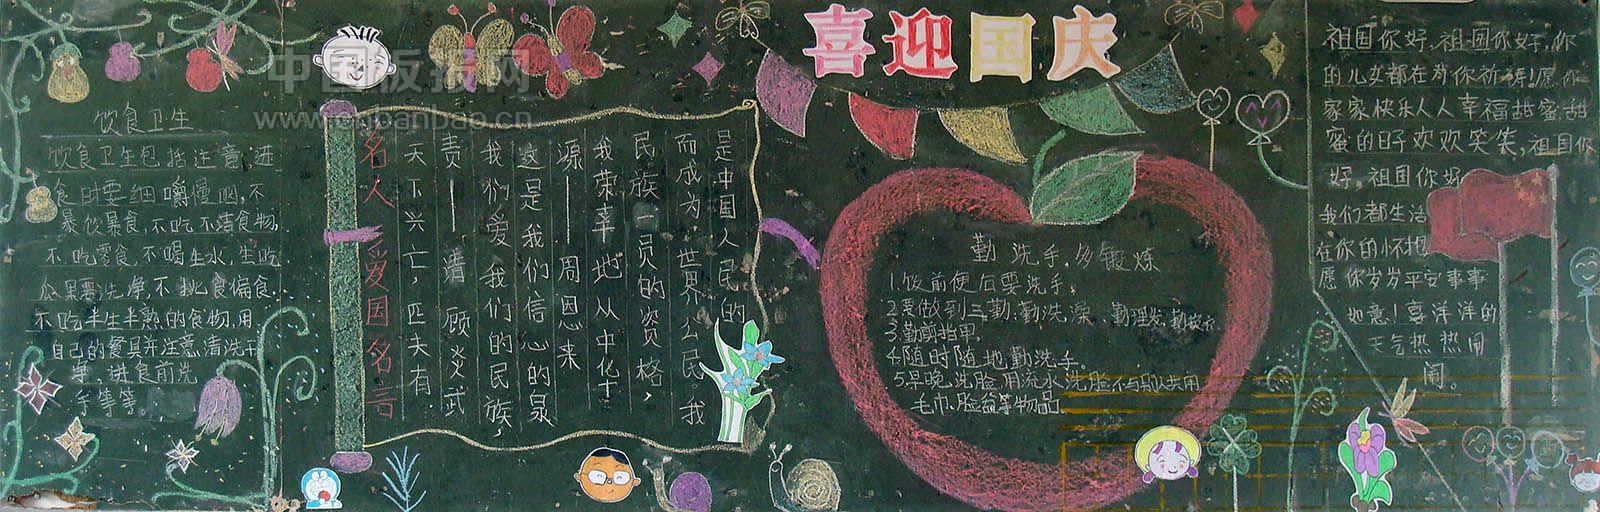 喜迎国庆
中国板报网
www.cnbanbao.cn
饮食卫生
饮食卫生包括注意进
食时要细嚼慢咽,不
暴饮暴食,不吃不洁食物,
不吃零食,不喝生水,生吃
瓜果要洗净,不挑食偏食.
不吃半生半熟的食物,用
自己的餐具并注意清洗干
净,进食前洗
手等等。
名人爱国名言
天下兴亡,匹夫有
责——清 顾炎武
我们爱我们的民族,
这是我们信心的泉
源——周恩来
我荣幸地从中华
民族一员的资格,
而成为世界公民。我
是中国人民的
勤洗手,多锻炼
1.饭前便后要洗手;
2要做到三勤:勤洗澡、勤理发、勤换衣
3.勤剪指甲.
4.随时随地勤洗手。
5.早晚洗脸用流水洗脸不与别人共用
毛巾、脸盆等物品.
祖国你好,祖国你好,你
的儿女都在为你祈涛!愿你
家家快乐人人幸福甜蜜甜
蜜的日子欢欢笑笑,祖国你
好,祖国你好
我们都生活
在你的怀抱
愿你岁岁平安事事
如意!喜洋洋的
天气热热闹
闹。